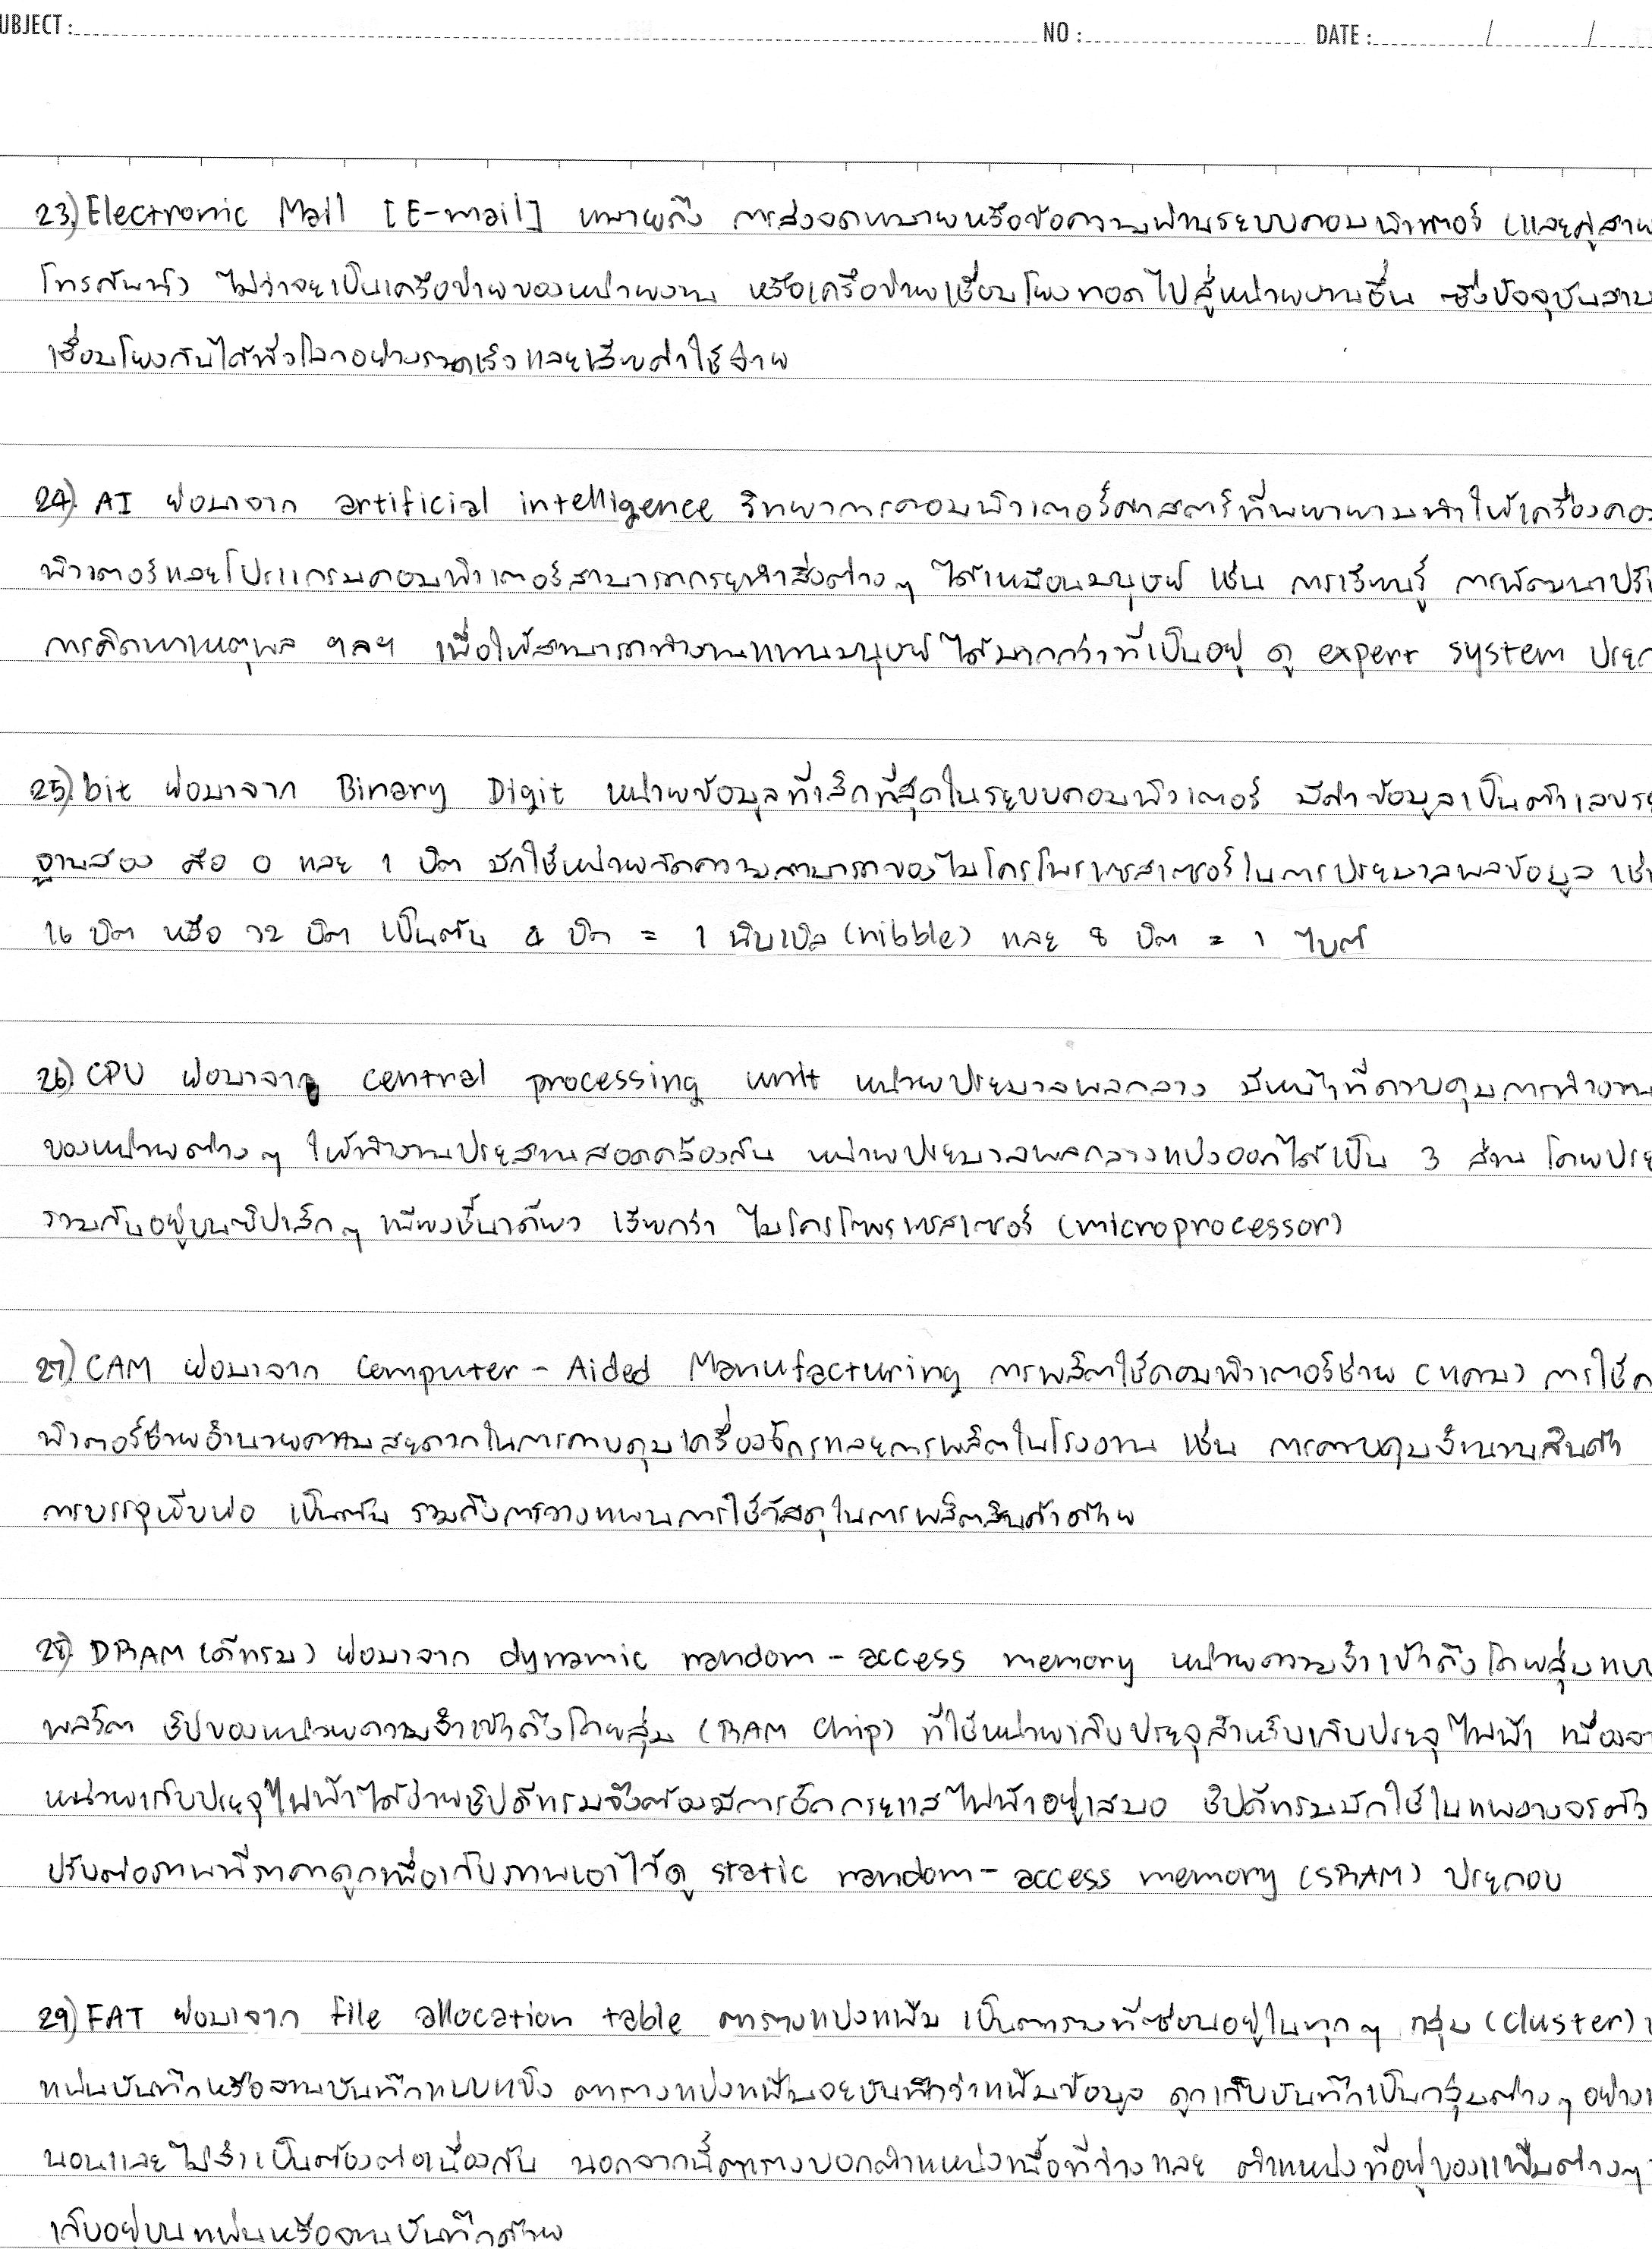 UBJECT : NO : DATE : / /
23) Electronic Mail [E-mail] หมายถึง การส่งจดหมายหรือข้อความผ่านระบบคอมพิวเตอร์ (และคู่สาย
โทรศัพท์) ไม่ว่าจะเป็นเครือข่ายของหน่วยงาน หรือเครือข่ายเชื่อมโยงทอดไปสู่หน่วยงานอื่น ซึ่งปัจจุบันสาม
เชื่อมโยงกันได้ทั่วโลกอย่างรวดเร็วและเสียค่าใช้จ่าย
24) AI ย่อมาจาก artificial intelligence วิทยาการคอมพิวเตอร์ศาสตร์ที่พยายามทำให้เครื่องคอม
พิวเตอร์และโปรแกรมคอมพิวเตอร์สามารถกระทำสิ่งต่างๆ ได้เหมือนมนุษย์ เช่น การเรียนรู้ การพัฒนาปรับ
การคิดหาเหตุผล ฯลฯ เพื่อให้สามารถทำงานแทนมนุษย์ได้มากกว่าที่เป็นอยู่ ดู expert system ประก
25) bit ย่อมาจาก Binary Digit หน่วยข้อมูลที่เล็กที่สุดในระบบคอมพิวเตอร์ มีค่าข้อมูลเป็นตัวเลขระ
ฐานสอง คือ 0 และ 1 บิต มักใช้หน่วยวัดความสามารถของไมโครโพรเซสเซอร์ในการประมวลผลข้อมูล เช่
16 บิต หรือ 32 บิต เป็นต้น 4 บิต = 1 นิบเบิล (nibble) และ 8 บิต = 1 ไบต์
26) CPU ย่อมาจาก central processing unit หน่วยประมวลผลกลาง มีหน้าที่ควบคุมการทำงาน
ของหน่วยต่างๆ ให้ทำงานประสานสอดคล้องกัน หน่วยประมวลผลกลางแบ่งออกได้เป็น 3 ส่วน โดยประ
รวมกันอยู่บนชิปเล็กๆ เพียงชิ้นเดียว เรียกว่า ไมโครโพรเซสเซอร์ (microprocessor)
27) CAM ย่อมาจาก Computer - Aided Manufacturing การผลิตใช้คอมพิวเตอร์ช่วย (แคม) การใช้ค
พิวเตอร์ช่วยอำนวยความสะดวกในการควบคุมเครื่องจักรและการผลิตในโรงงาน เช่น การควบคุมจำนวนสินค้า
การบรรจุหีบห่อ เป็นต้น รวมถึงการวางแผนการใช้วัสดุในการผลิตสินค้าด้วย
28) DRAM (ดีแรม) ย่อมาจาก dynamic random - access memory หน่วยความจำเข้าถึงโดยสุ่มแบบ
พลวัต ชิปของหน่วยความจำเข้าถึงโดยสุ่ม (RAM Chip) ที่ใช้หน่วยเก็บประจุสำหรับเก็บประจุไฟฟ้า เนื่องจา
หน่วยเก็บประจุไฟฟ้าได้ง่ายชิปดีแรมจึงต้องมีการอัดกระแสไฟฟ้าอยู่เสมอ ชิปดีแรมมักใช้ในแผงวงจรตัว
ปรับต่อภาพที่ราคาถูกเพื่อเก็บภาพเอาไว้ดู static random - access memory (SRAM) ประกอบ
29) FAT ย่อมาจาก file allocation table ตารางแบ่งแฟ้ม เป็นตารางที่ซ่อนอยู่ในทุกๆ กลุ่ม (cluster)
แผ่นบันทึกหรือจานบันทึกแบบแข็ง ตารางแบ่งแฟ้มจะบันทึกว่าแฟ้มข้อมูล ถูกเก็บบันทึกเป็นกลุ่มต่างๆ อย่าง
นอนและไม่จำเป็นต้องต่อเนื่องกัน นอกจากนี้ตารางบอกตำแหน่งเนื้อที่ว่างและ ตำแหน่งที่อยู่ของแฟ้มต่างๆ
เก็บอยู่บนแผ่นหรือจานบันทึกด้วย